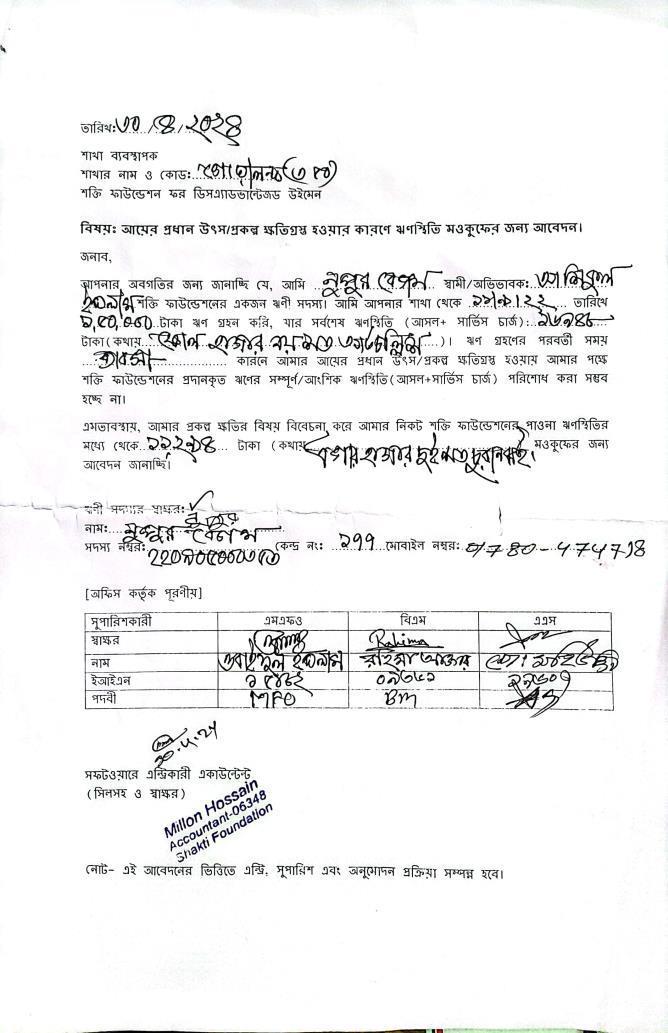 তারিখ: ৩০/৪/২০২৪
শাখা ব্যবস্থাপক
শাখার নাম ও কোড:
শক্তি ফাউন্ডেশন ফর ডিসএ্যাডভান্টেজড উইমেন
বিষয়: আয়ের প্রধান উৎস/প্রকল্প ক্ষতিগ্রস্থ হওয়ার কারণে ঋণস্থিতি মওকুফের জন্য আবেদন।
জনাব,
আপনার অবগতির জন্য জানাচ্ছি যে, আমি নুপুর বেগম স্বামী/অভিভাবক:
ইসলাম শক্তি ফাউন্ডেশনের একজন ঋণী সদস্য। আমি আপনার শাখা থেকে তারিখে
টাকা ঋণ গ্রহন করি, যার সর্বশেষ ঋণস্থিতি (আসল+ সার্ভিস চার্জ):
টাকা (কথায় হাজার নয়শত )। ঋণ গ্রহণের পরবর্তী সময়
কারনে আমার আয়ের প্রধান উৎস/প্রকল্প ক্ষতিগ্রস্থ হওয়ায় আমার পক্ষে
শক্তি ফাউন্ডেশনের প্রদানকৃত ঋণের সম্পূর্ণ/আংশিক ঋণস্থিতি(আসল+সার্ভিস চার্জ) পরিশোধ করা সম্ভব
হচ্ছে না।
এমতাবস্থায়, আমার প্রকল্প ক্ষতির বিষয় বিবেচনা করে আমার নিকট শক্তি ফাউন্ডেশনের পাওনা ঋণস্থিতির
মধ্যে থেকে টাকা (কথায় এগার হাজার দুইশত চুরানব্বই। মওকুফের জন্য
আবেদন জানাচ্ছি।
ঋণী সদস্যের স্বাক্ষর: নুপুর
নাম: নুপুর বেগম
সদস্য নম্বর: কেন্দ্র নং: ১৭৭ মোবাইল নম্বর:
[অফিস কর্তৃক পূরণীয়]
সুপারিশকারী এমএফও বিএম এএস
স্বাক্ষর Rahima
নাম ইসলাম রহিমা আক্তার
ইআইএন
পদবী MFO BM
সফটওয়ারে এন্ট্রিকারী একাউন্টেন্ট
(সিলসহ ও স্বাক্ষর)
Millon Hossain
Accountant-06348
Shakti Foundation
নোট- এই আবেদনের ভিত্তিতে এন্ট্রি, সুপারিশ এবং অনুমোদন প্রক্রিয়া সম্পন্ন হবে।